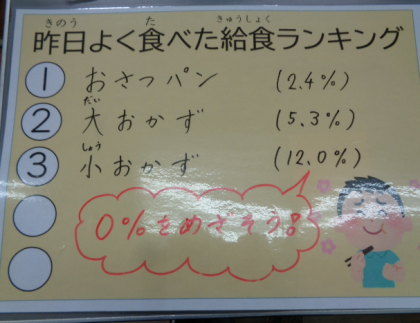 昨日よく食べた給食ランキング
1 おさつパン (2.4%)
2 大おかず (5.3%)
3 小おかず (12.0%)
0%をめざそう!